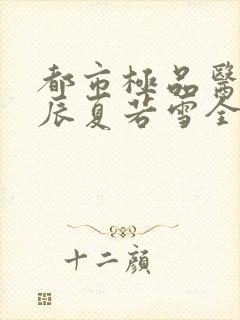 都市極品醫
辰夏若雪全
十二顏